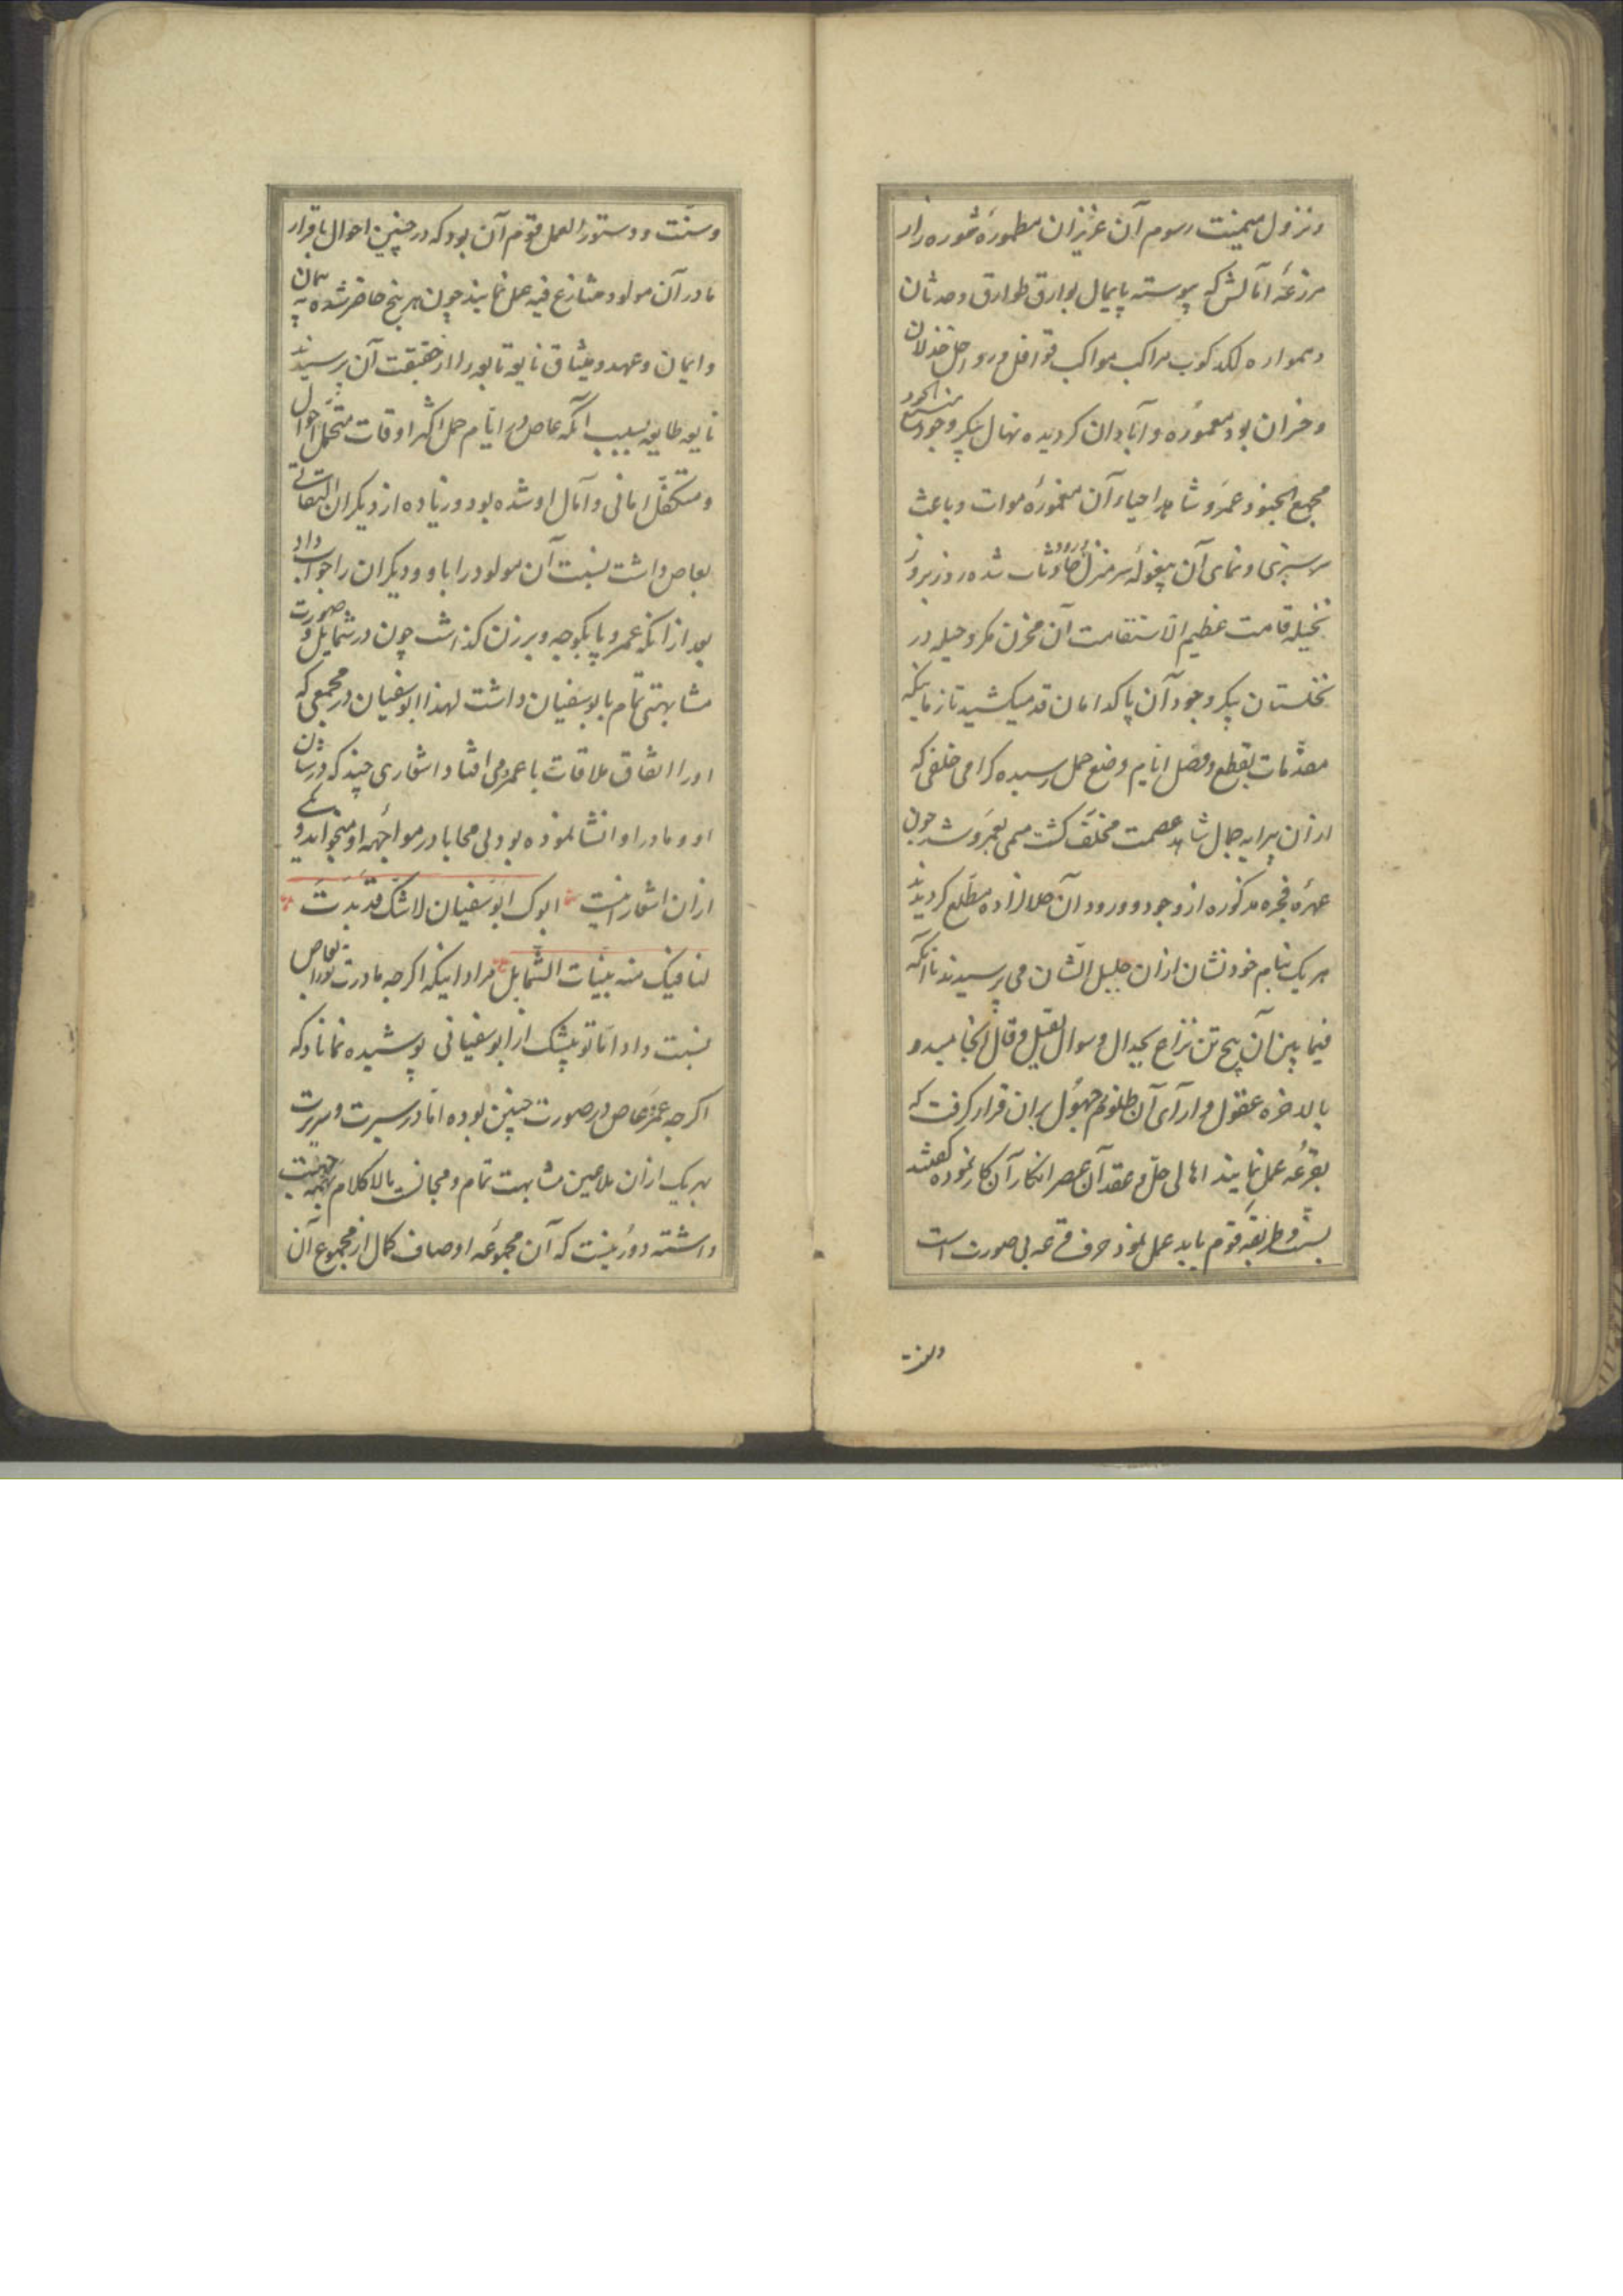 ونزول میمنت رسوم آن عزیزان مطموره شوره زار
مزرعه آمالش که پیوسته پایمال بوارق طوارق وحدثان
وهمواره لکد کوب مراکب مواکب قوافل ورواحل خذلان
وخسران بود معموره وآبادان کردیده نهال پیکر وجود
مجمع الخبز وعمرو شاهد احیاء آن مغموره موات وباعث
سر سبزی ونمای آن بیغوله سر منزل شده روز بروز
نخیله قامت عظیم الاستقامت آن مخزن مکر وحیله در
نخلستان پیکر وجود آن پاکدامان قد میکشید تا زمانیکه
مقدمات بقطع وفصل ایام وضع حمل رسیده کرامی خلفی که
ازان پیرایه جمال شاهد عصمت مخلف کشت مسمی بعمرو شد چون
عهره فجره مذکوره از وجود وورود آن حلالزاده مطلع کردیدند
هر یک بنام خود نشان ازان جلیل الشان می پرسیدند تا آنکه
فیما بین آن پنج تن نزاع بجدال وسوال بقیل وقال انجامید و
بالاخره عقول وآرآی آن ظلوم جهول بران قرار کرفت که
بقرعه عمل نمایند اهالی حل وعقد آن عصر انکار آن کار نموده کفتند
بسنت وطریقه قوم باید عمل نمود حرف قرعه بی صورت است
وسنت
وسنت ودستور العمل قوم آن بود که در چنین احوال باقرار
مادر آن مولود متنازع فیه عمل نمایند چون هر پنج حاضر شده به
وایمان وعهد ومیثاق نابغه تابعه را از حقیقت آن پرسیدند
نابغه طایفه بسبب آنکه عاص در ایام حمل اکثر اوقات متحمل احوال
ومتکفل امانی وآمال او شده بود وزیاده از دیکران التفاتی
بعاص داشت نسبت آن مولود را باو ودیکران را جواب داد
بعد ازانکه عمرو پا بکوچه وبرزن کذاشت چون در شمایل و صورت
مشابهتی تمام بابوسفیان داشت لهذا ابوسفیان در مجمعی که
اورا اتفاق ملاقات با عمرو می افتاد اشعاری چند که در شان
او ومادر او انشا نموده بود بی محابا در مواجهه او میخواند و یکی
ازان اشعار اینست ابوک ابوسفیان لاشک قد بدت
لنا فیک منه بینات الشمایل مراد اینکه اکرچه مادرت تورا بعاص
نسبت داد اما تو بیشک از ابوسفیانی پوشیده نماناد که
اکرچه عمرو عاص در صورت چنین بوده اما در سیرت وسریرت
بهر یک ازان ملاعین مشابهت تمام ومجانست بالاکلام
داشته دور نیست که آن مجموعه اوصاف کمال از مجموع آن